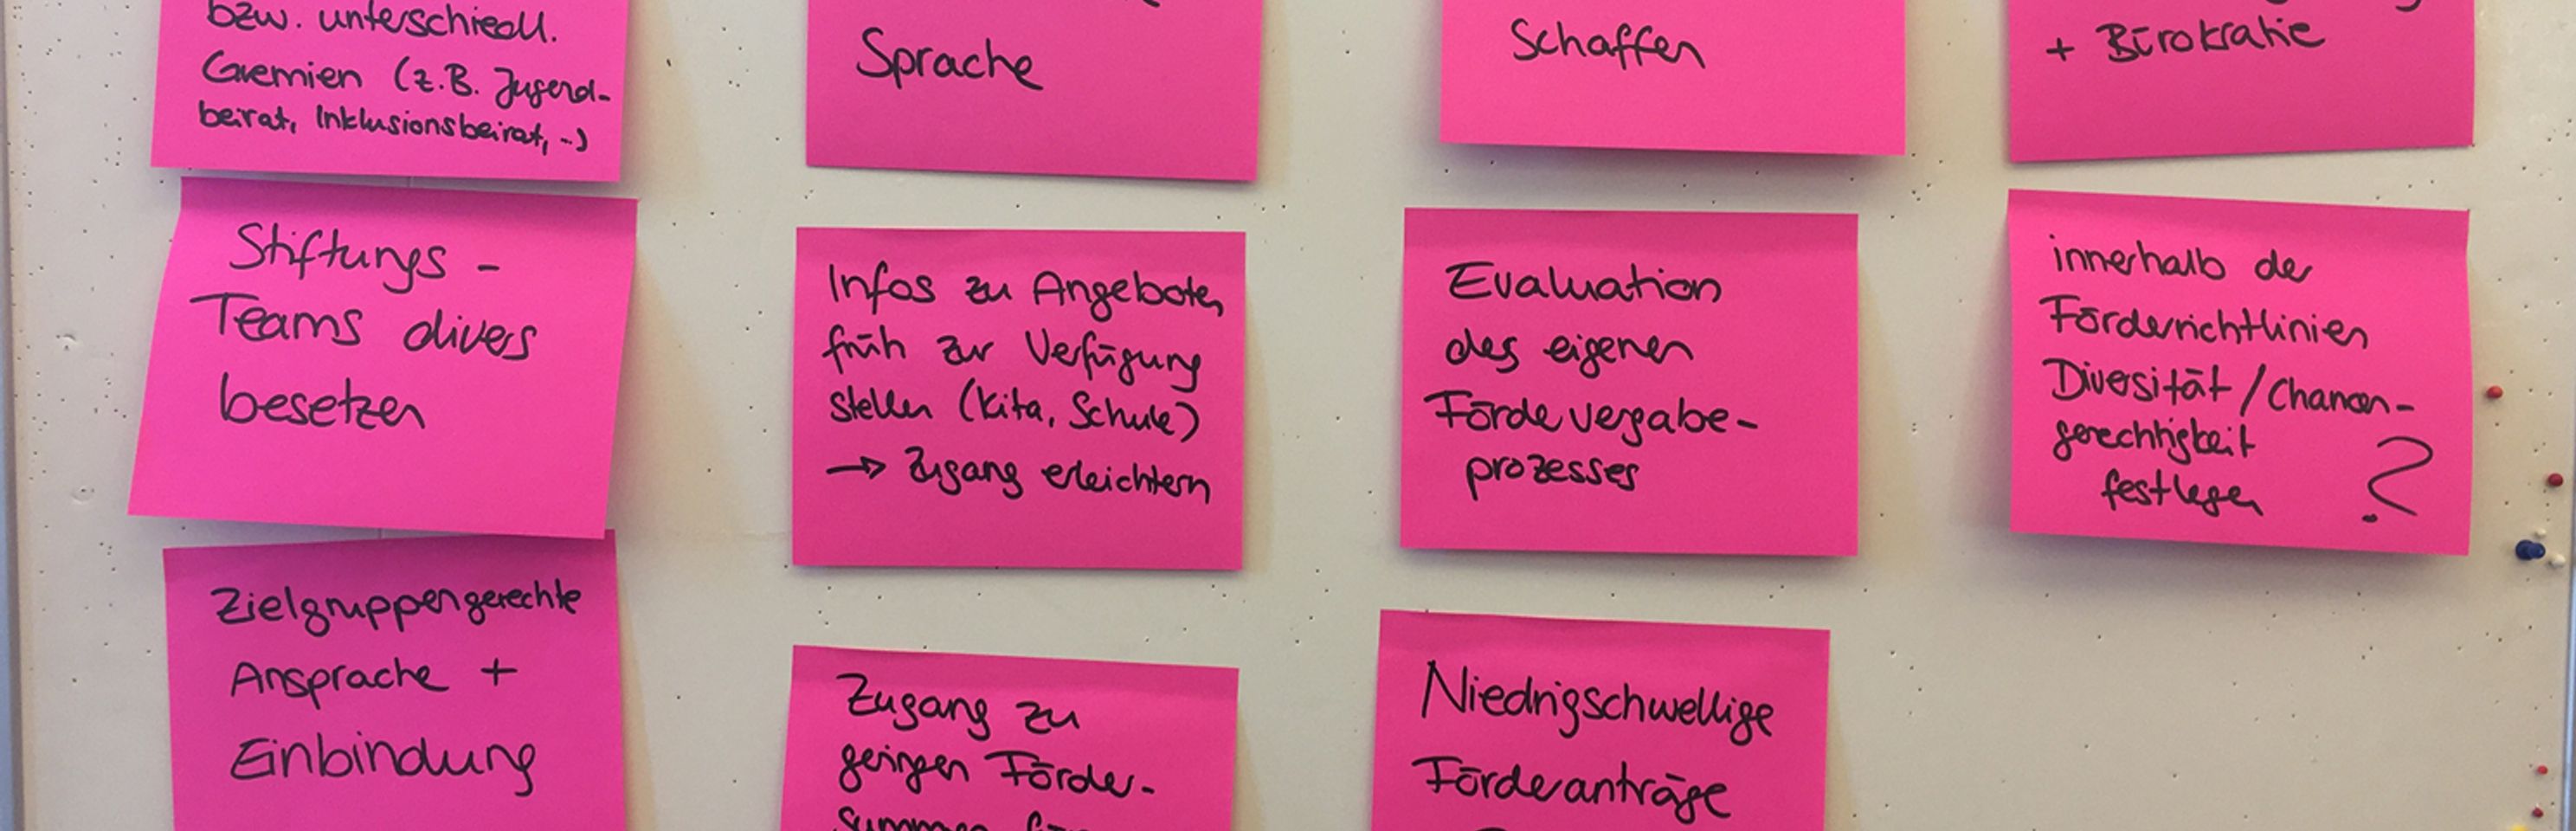 bzw. unterschiedl.
Gremien (z.B. Jugend-
beirat, Inklusionsbeirat, ..)
Sprache
Schaffen
+ Bürokratie
Stiftungs -
Teams divers
besetzen
Infos zu Angeboten
früh zur Verfügung
stellen (Kita, Schule)
→ Zugang erleichtern
Evaluation
des eigenen
Fördervergabe-
prozesses
innerhalb der
Förderrichtlinien
Diversität/Chancen-
gerechtigkeit
festlegen ?
Zielgruppengerechte
Ansprache +
Einbindung
Zugang zu
geringen Förder-
Niedrigschwellige
Förderanträge